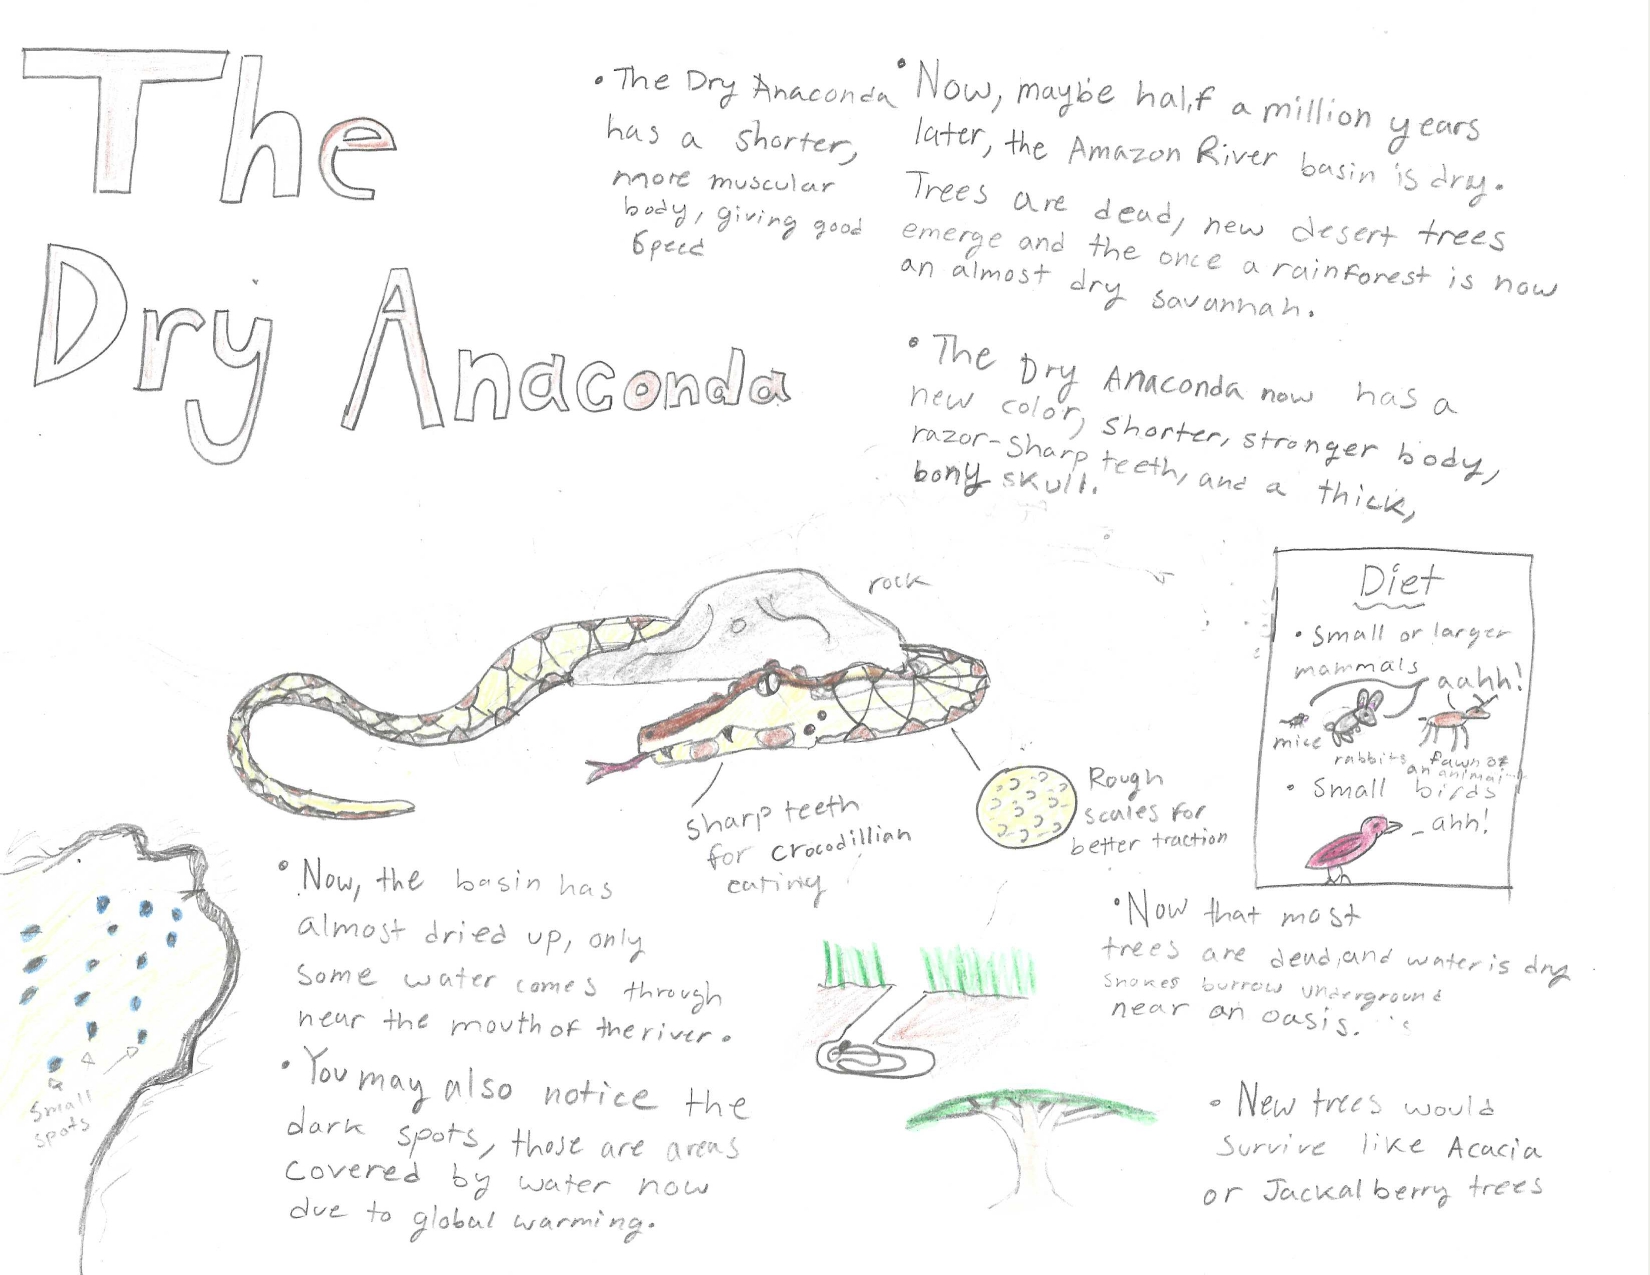 The
Dry Anaconda
• The Dry Anaconda
has a shorter,
more muscular
body, giving good
speed
• Now, maybe half a million years
later, the Amazon River basin is dry.
Trees are dead, new desert trees
emerge and the once a rainforest is now
an almost dry savannah.
• The Dry Anaconda now has a
new color, shorter, stronger body,
razor-sharp teeth, and a thick,
bony skull.
rock
sharp teeth
for crocodillian
eating
Rough
scales for
better traction
Diet
• Small or larger
mammals
aahh!
mice
rabbits
fawn of
an animal
• Small birds
ahh!
small
spots
• Now, the basin has
almost dried up, only
some water comes through
near the mouth of the river.
• You may also notice the
dark spots, those are areas
covered by water now
due to global warming.
• Now that most
trees are dead, and water is dry
snakes burrow underground
near an oasis.
• New trees would
survive like Acacia
or Jackalberry trees